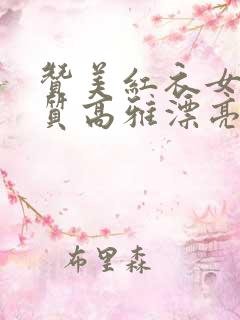 贊美紅衣女
質高雅漂亮
布里森